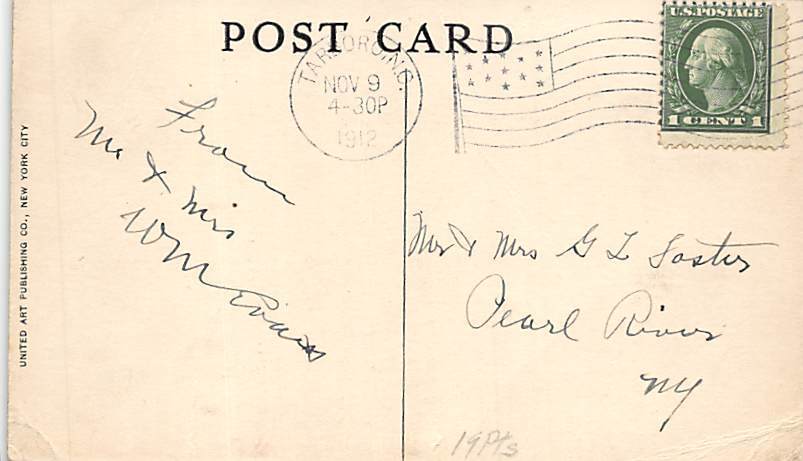 POST CARD
TARBORO, N.C.
NOV 9
4-30P
1912
U.S. POSTAGE
1 CENT 1
From
Mr & Mrs
Wm Evans
Mr & Mrs G L Foster
Pearl River
NY
19Pts
UNITED ART PUBLISHING CO., NEW YORK CITY